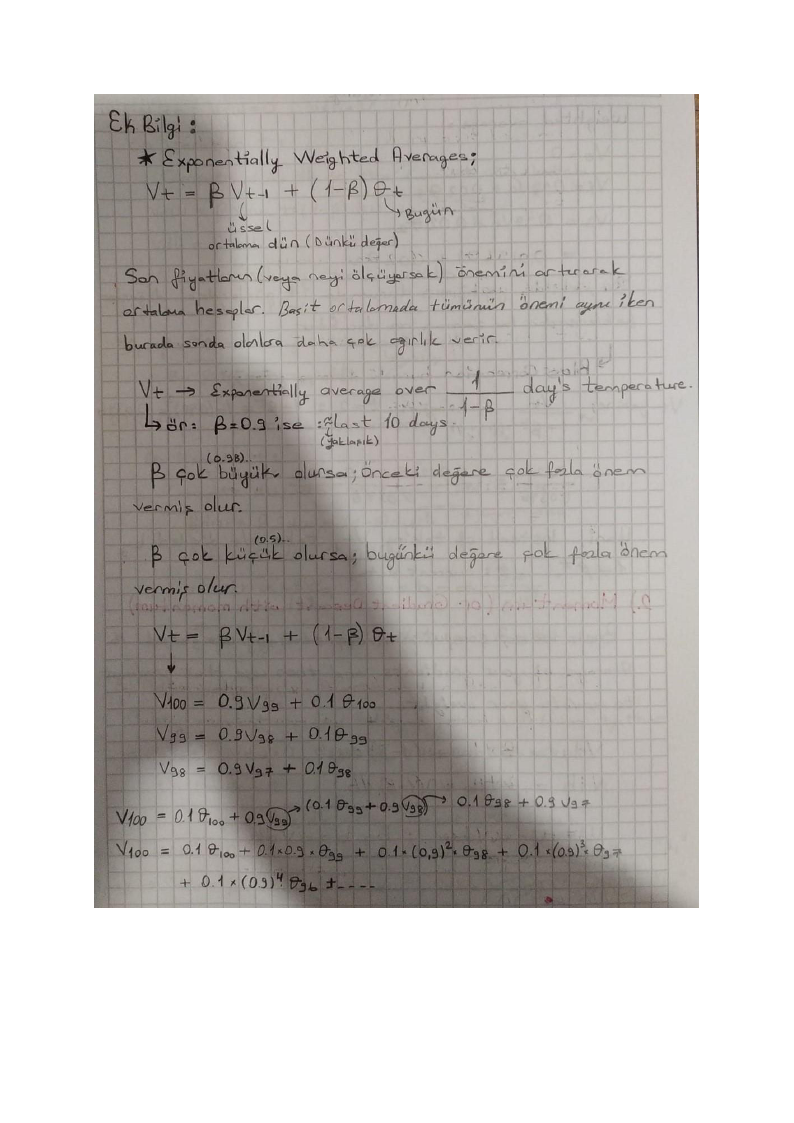 Ek Bilgi:
★ Exponentially Weighted Averages;
Vt = β Vt-1 + (1-β) θt
Bugün
üssel
ortalama dün (Dünkü değer)
Son fiyatların (veya neyi ölçüyorsak) önemini artırarak
ortalama hesaplar. Basit ortalamada tümünün önemi aynı iken
burada sonda olanlara daha çok ağırlık verir.
Vt → Exponentially average over 1/(1-β) day's temperature.
↳ ör: β=0.9 ise :≈last 10 days.
(yaklaşık)
(0.98)..
β çok büyük olursa; önceki değere çok fazla önem
vermiş olur.
(0.5)..
β çok küçük olursa; bugünkü değere çok fazla önem
vermiş olur.
Vt = βVt-1 + (1-β) θt
↓
V100 = 0.9V99 + 0.1 θ100
V99 = 0.9V98 + 0.1θ99
V98 = 0.9V97 + 0.1θ98
V100 = 0.1θ100 + 0.9V99 → (0.1θ99 + 0.9V98) → 0.1θ98 + 0.9V97
V100 = 0.1θ100 + 0.1×0.9×θ99 + 0.1×(0,9)²×θ98 + 0.1×(0.9)³×θ97
+ 0.1×(0.9)⁴ θ96 + ----